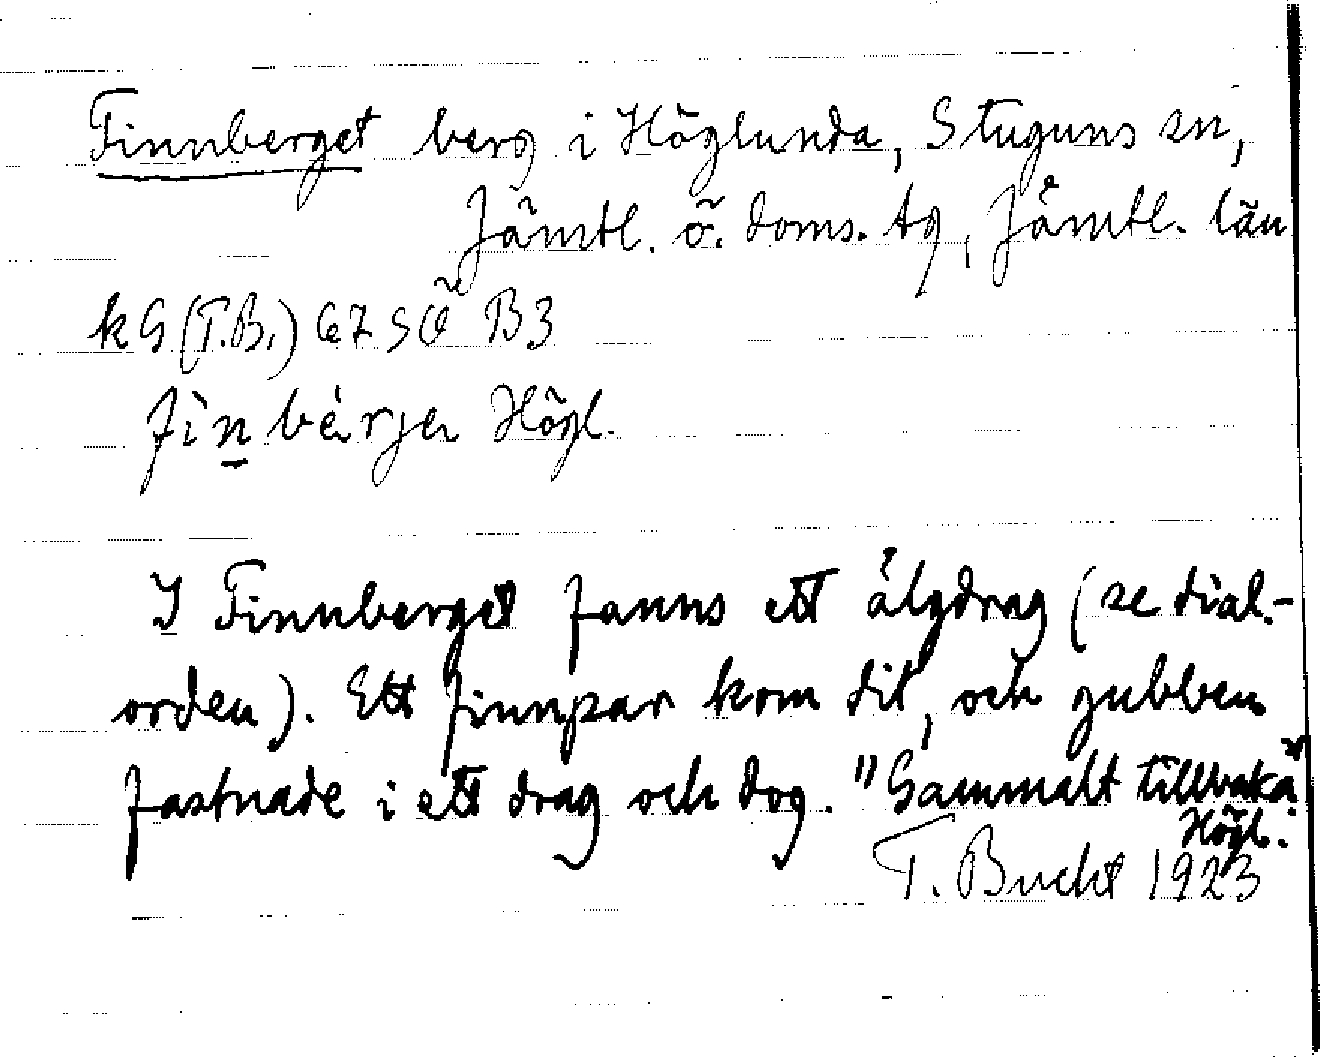 Finnberget berg i Höglunda, Stuguns sn,
Jämtl. ö. doms. tg, Jämtl. län
kG (T.B.) 67 SÖ B3
fìnbérjen Högl.
I Finnberget fanns ett älgdrag (se dial.-
orden). Ett finnpar kom dit, och gubben
fastnade i ett drag och dog. "Gammalt tillbaka"
Högl.
T. Bucht 1923